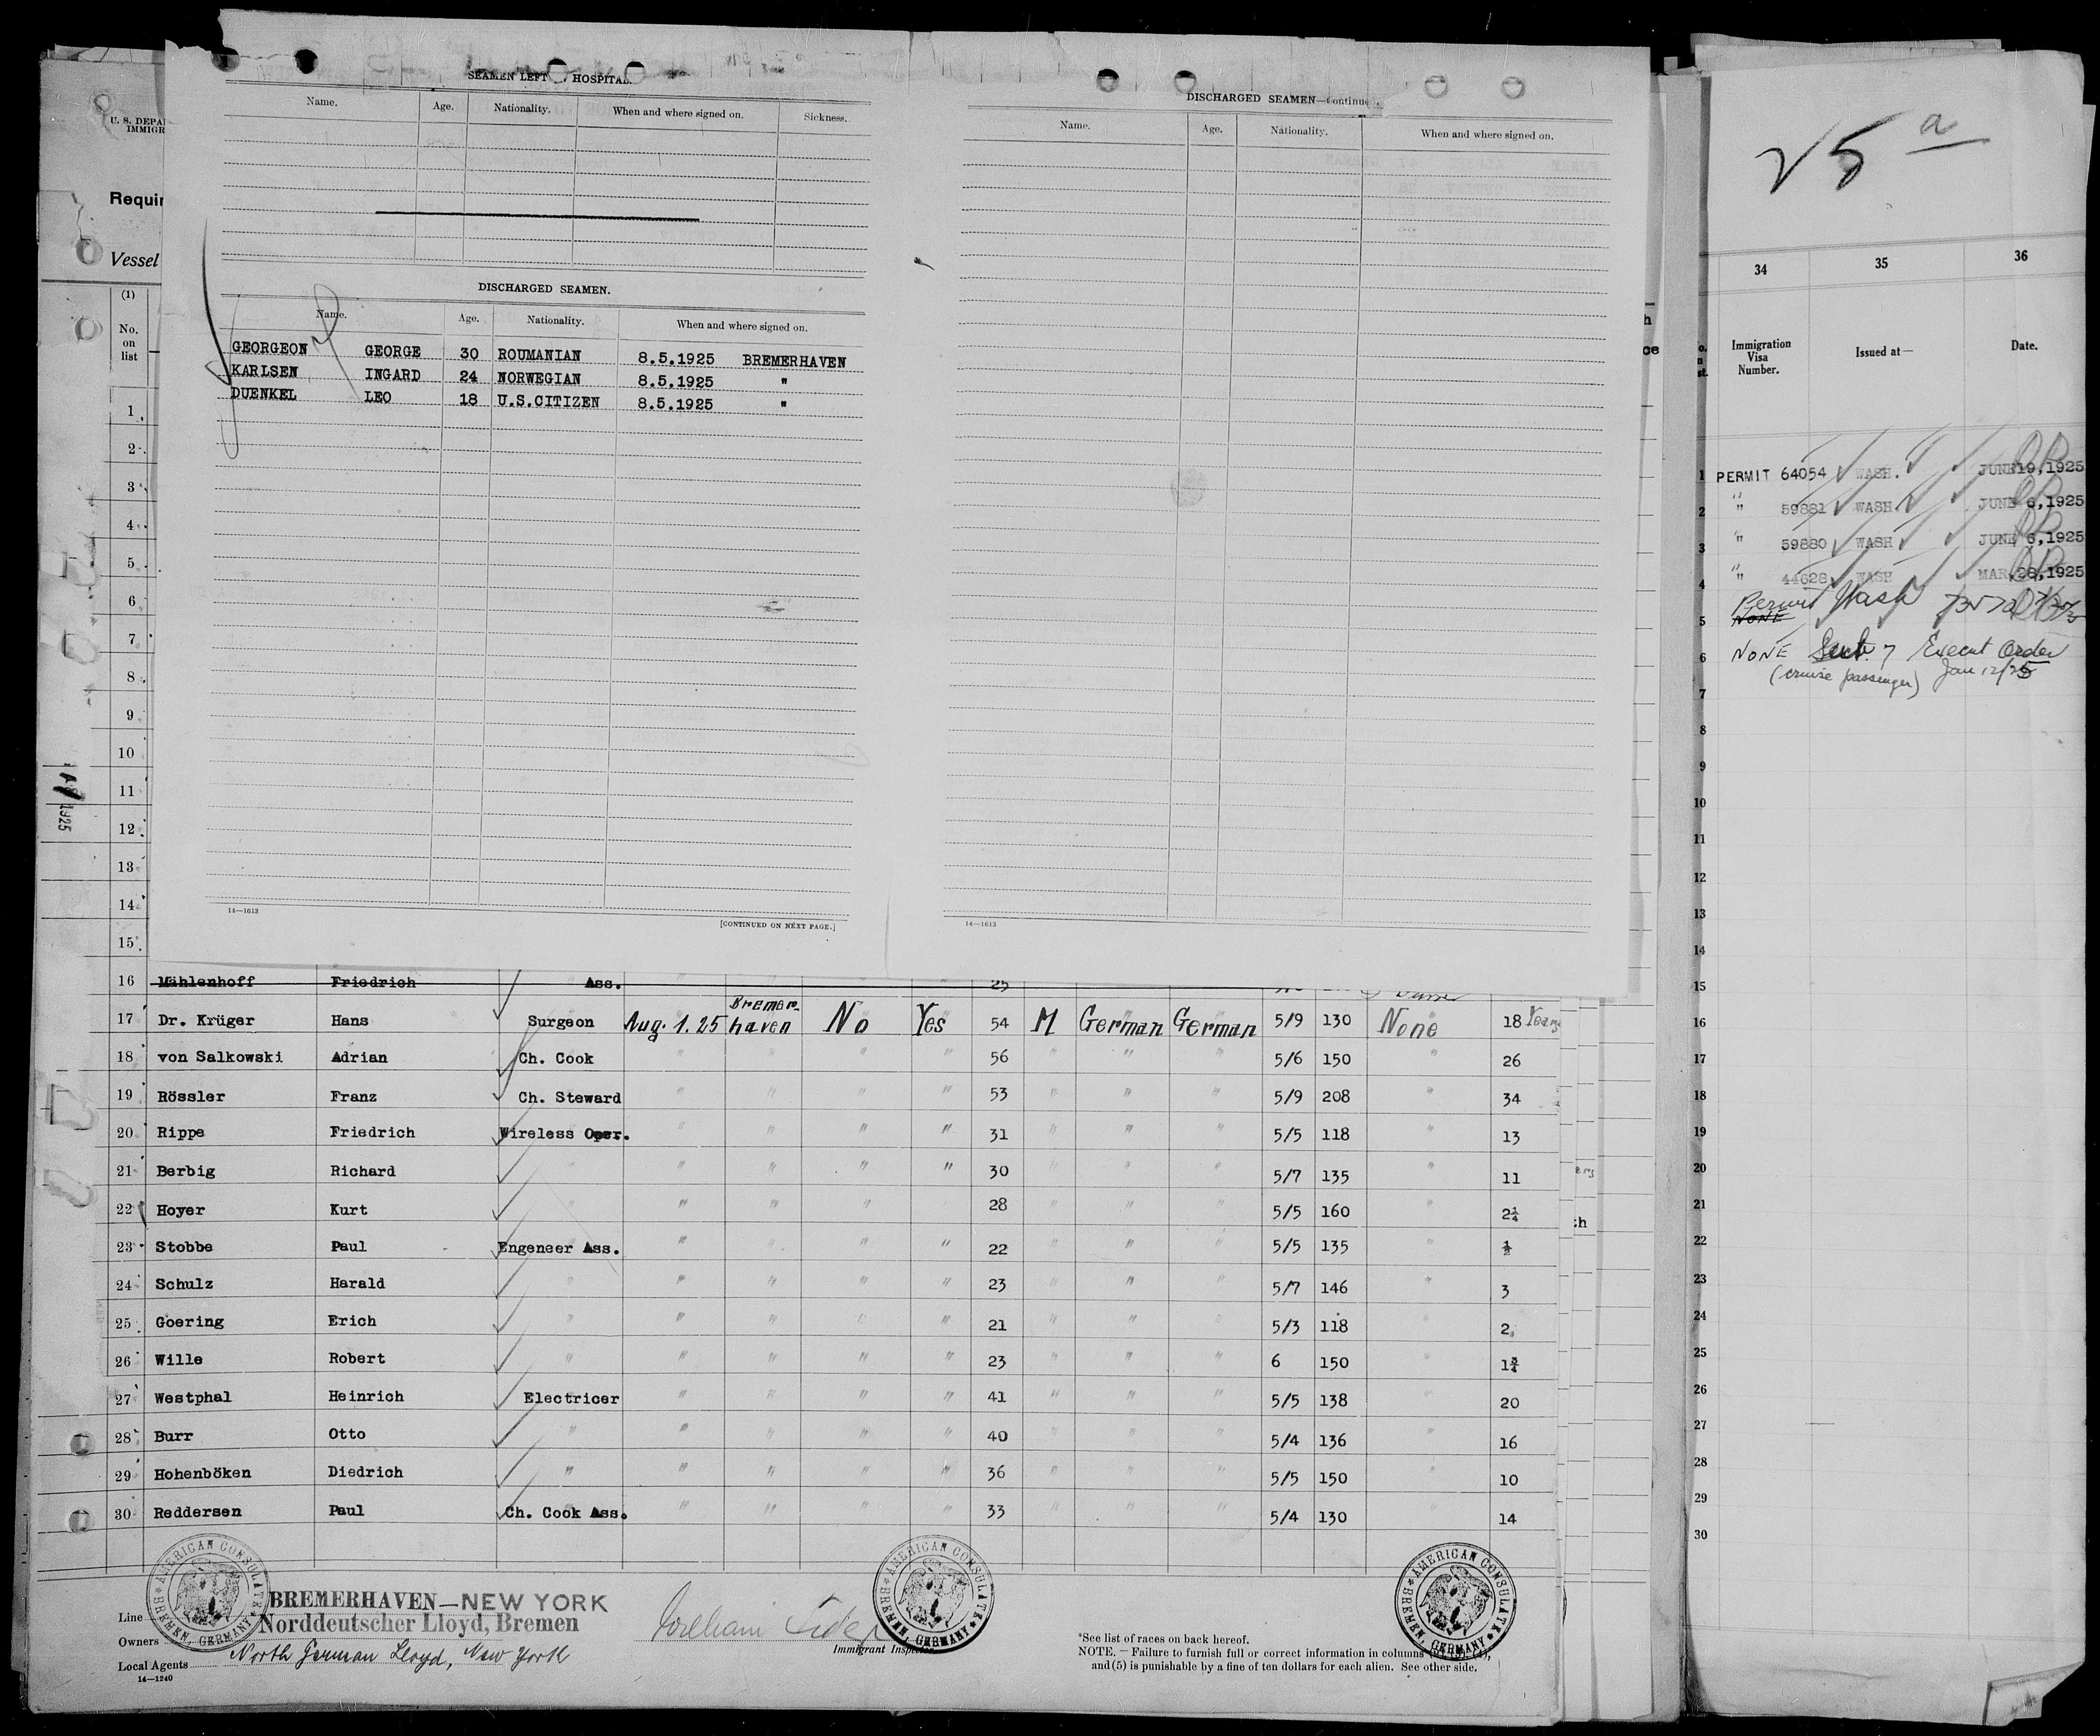 SEAMEN LEFT HOSPITAL
Name. Age. Nationality. When and where signed on. Sickness.
DISCHARGED SEAMEN.
Name. Age. Nationality. When and where signed on.
GEORGEON GEORGE 30 ROUMANIAN 8.5.1925 BREMERHAVEN
KARLSEN INGARD 24 NORWEGIAN 8.5.1925 "
DUENKEL LEO 18 U.S.CITIZEN 8.5.1925 "
14—1613
[CONTINUED ON NEXT PAGE.]
DISCHARGED SEAMEN—Continue
Name. Age. Nationality. When and where signed on.
14—1613
U. S. DEPA
IMMIGR
Requir
Vessel
(1)
No.
on
list
1
2
3
4
5
6
7
8
9
10
11
12
13
14
15
1925
16 Mählenhoff Friedrich Ass. 25
17 Dr. Krüger Hans Surgeon Aug. 1. 25 Bremer-haven No Yes 54 M German German 5/9 130 None 18 Years
18 von Salkowski Adrian Ch. Cook " " " " 56 " " " 5/6 150 " 26
19 Rössler Franz Ch. Steward " " " " 53 " " " 5/9 208 " 34
20 Rippe Friedrich Wireless Oper. " " " " 31 " " " 5/5 118 " 13
21 Berbig Richard " " " " " 30 " " " 5/7 135 " 11
22 Hoyer Kurt " " " " " 28 " " " 5/5 160 " 2¼
23 Stobbe Paul Engeneer Ass. " " " " 22 " " " 5/5 135 " ½
24 Schulz Harald " " " " " 23 " " " 5/7 146 " 3
25 Goering Erich " " " " " 21 " " " 5/3 118 " 2
26 Wille Robert " " " " " 23 " " " 6 150 " 1¾
27 Westphal Heinrich Electricer " " " " 41 " " " 5/5 138 " 20
28 Burr Otto " " " " " 40 " " " 5/4 136 " 16
29 Hohenböken Diedrich " " " " " 36 " " " 5/5 150 " 10
30 Reddersen Paul Ch. Cook Ass. " " " " 33 " " " 5/4 130 " 14
AMERICAN CONSULATE BREMEN, GERMANY
AMERICAN CONSULATE BREMEN, GERMANY
AMERICAN CONSULATE BREMEN, GERMANY
Line BREMERHAVEN—NEW YORK
Owners Norddeutscher Lloyd, Bremen
Local Agents North German Lloyd, New York
14—1240
William
Immigrant Inspector
*See list of races on back hereof.
NOTE.—Failure to furnish full or correct information in columns
and (5) is punishable by a fine of ten dollars for each alien. See other side.
25 a
34 35 36
Immigration Visa Number. Issued at— Date.
1 PERMIT 64054 WASH. JUNE 19, 1925
2 " 59881 WASH JUNE 6, 1925
3 " 59880 WASH JUNE 6, 1925
4 " 44628 WASH MAR 28, 1925
Permit Wash
5 NONE
6 NONE Sub. 7 Execut Order
(cruise passenger) Jan 12/25
7
8
9
10
11
12
13
14
15
16
17
18
19
20
21
22
23
24
25
26
27
28
29
30